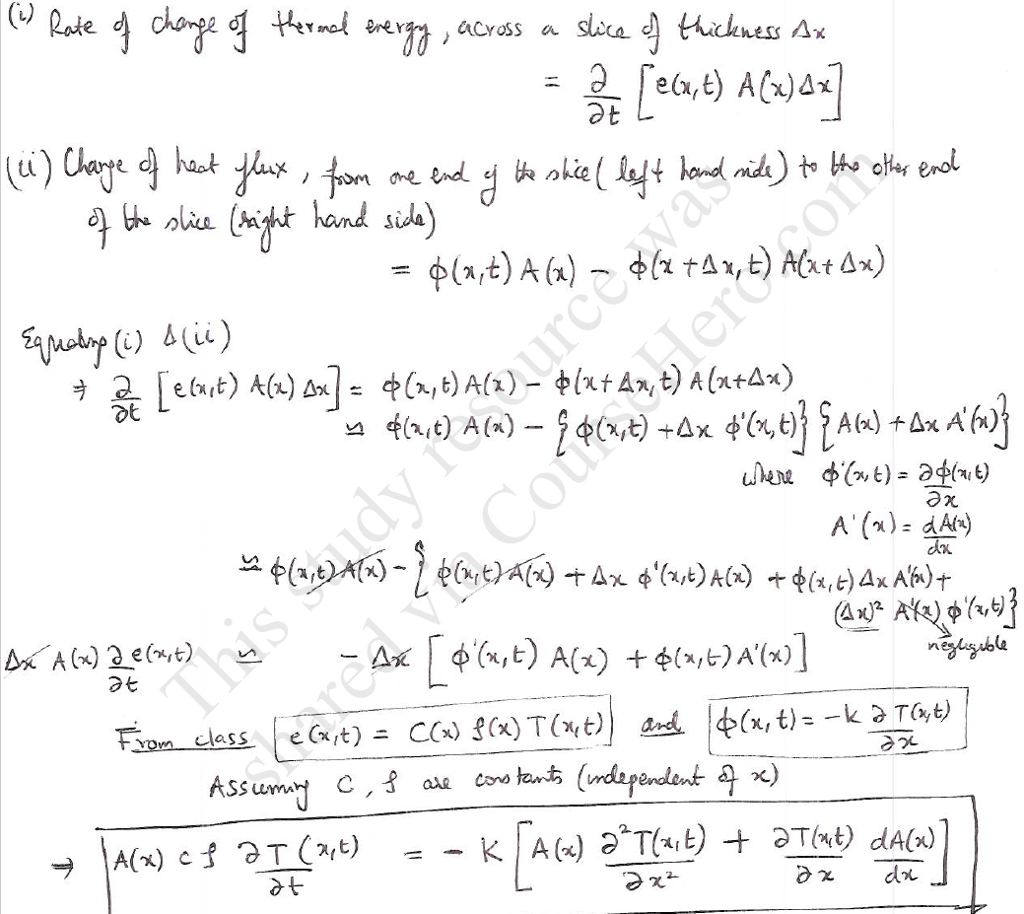 (i) Rate of change of thermal energy, across a slice of thickness Δx
= ∂/∂t [e(x,t) A(x) Δx]
(ii) Change of heat flux, from one end of the slice (left hand side) to the other end
of the slice (right hand side)
= φ(x,t) A(x) − φ(x+Δx, t) A(x+Δx)
Equating (i) & (ii)
⇒ ∂/∂t [e(x,t) A(x) Δx] = φ(x,t) A(x) − φ(x+Δx, t) A(x+Δx)
≃ φ(x,t) A(x) − {φ(x,t) + Δx φ'(x,t)} {A(x) + Δx A'(x)}
where φ'(x,t) = ∂φ(x,t)/∂x
A'(x) = dA(x)/dx
≃ φ(x,t) A(x) − {φ(x,t) A(x) + Δx φ'(x,t) A(x) + φ(x,t) Δx A'(x) +
(Δx)² A'(x) φ'(x,t)}
negligible
Δx A(x) ∂e(x,t)/∂t ≃ − Δx [φ'(x,t) A(x) + φ(x,t) A'(x)]
From class e(x,t) = C(x) ρ(x) T(x,t) and φ(x,t) = −k ∂T(x,t)/∂x
Assuming C, ρ are constants (independent of x)
⇒ A(x) c ρ ∂T(x,t)/∂t = − K [A(x) ∂²T(x,t)/∂x² + ∂T(x,t)/∂x dA(x)/dx]
This study resource was
shared via CourseHero.com